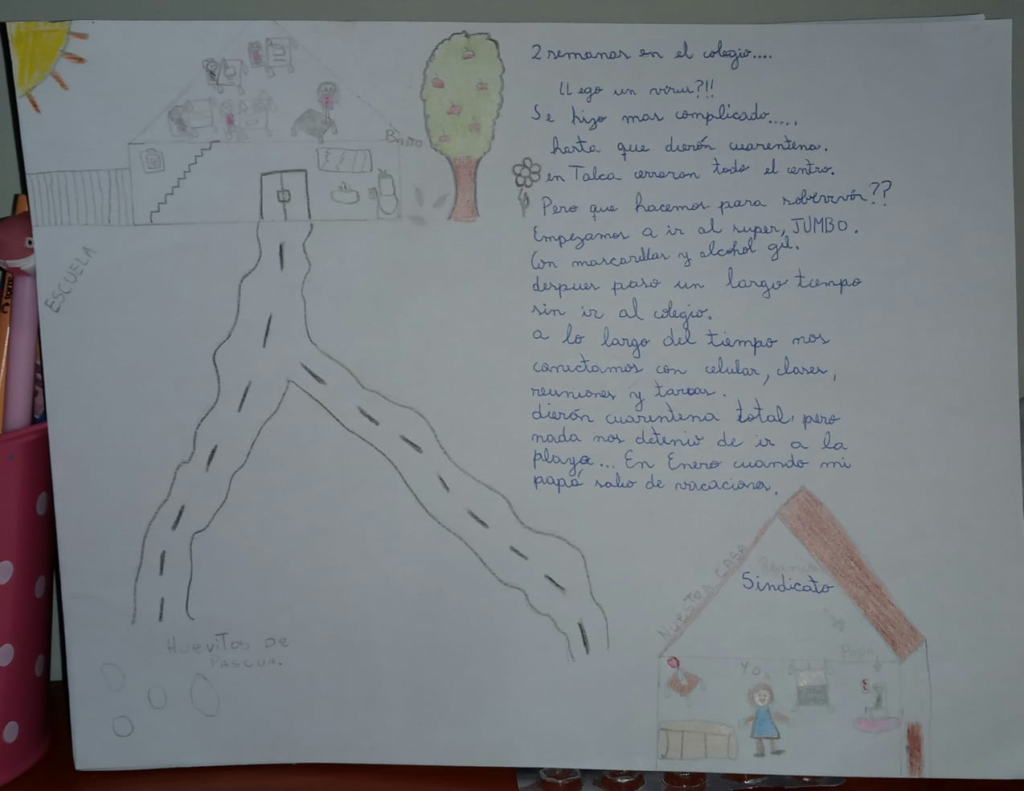 2 semanas en el colegio....
llego un virus?!!
Se hizo mas complicado.....
hasta que dierón cuarentena.
en Talca cerraron todo el centro.
Pero que hacemos para sobervivir??
Empezamos a ir al super, JUMBO.
Con mascarillas y alcohol gel.
despues paso un largo tiempo
sin ir al colegio.
a lo largo del tiempo nos
conectamos con celular, clases,
reuniones y tareas.
dierón cuarentena total, pero
nada nos detenio de ir a la
playa... En Enero cuando mi
papá salio de vacaciones.
Baño
ESCUELA
HUEVITOS DE
PASCUA.
NUESTRS CASA
Sindicato
Papá
YO.